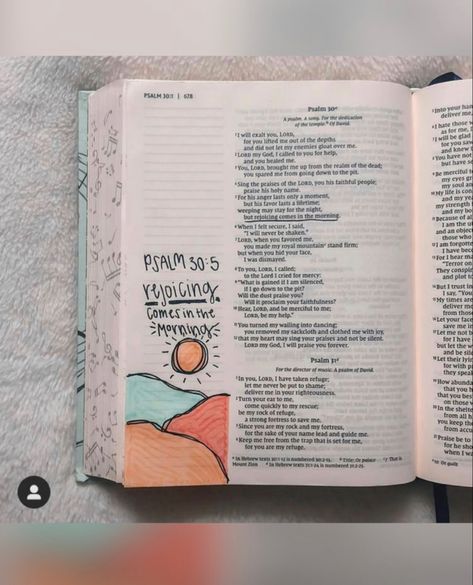 PSALM 30:1 | 678
Psalm 30ᵃ
A psalm. A song. For the dedication
of the temple.ᵇ Of David.
¹I will exalt you, LORD,
for you lifted me out of the depths
and did not let my enemies gloat over me.
²LORD my God, I called to you for help,
and you healed me.
³You, LORD, brought me up from the realm of the dead;
you spared me from going down to the pit.
⁴Sing the praises of the LORD, you his faithful people;
praise his holy name.
⁵For his anger lasts only a moment,
but his favor lasts a lifetime;
weeping may stay for the night,
but rejoicing comes in the morning.
⁶When I felt secure, I said,
"I will never be shaken."
⁷LORD, when you favored me,
you made my royal mountainᶜ stand firm;
but when you hid your face,
I was dismayed.
⁸To you, LORD, I called;
to the Lord I cried for mercy:
⁹"What is gained if I am silenced,
if I go down to the pit?
Will the dust praise you?
Will it proclaim your faithfulness?
¹⁰Hear, LORD, and be merciful to me;
LORD, be my help."
¹¹You turned my wailing into dancing;
you removed my sackcloth and clothed me with joy,
¹²that my heart may sing your praises and not be silent.
LORD my God, I will praise you forever.
Psalm 31ᵈ
For the director of music. A psalm of David.
¹In you, LORD, I have taken refuge;
let me never be put to shame;
deliver me in your righteousness.
²Turn your ear to me,
come quickly to my rescue;
be my rock of refuge,
a strong fortress to save me.
³Since you are my rock and my fortress,
for the sake of your name lead and guide me.
⁴Keep me free from the trap that is set for me,
for you are my refuge.
PSALM 30:5
rejoicing
Comes in the
Morning
⁵Into your han
deliver me,
⁶I hate those w
as for me, I
⁷I will be glad
for you saw
and knew t
⁸You have not
but have se
⁹Be merciful t
my eyes gr
my soul an
¹⁰My life is con
and my yea
my strength
and my b
¹¹Because of al
I am the u
and an object
those who
¹²I am forgotte
I have bec
¹³For I hear ma
"Terror on
They conspire
and plot to
¹⁴But I trust in
I say, "You
¹⁵My times are
deliver me
from those
¹⁶Let your face
save me in
¹⁷Let me not b
for I have c
but let the w
and be si
¹⁸Let their lyin
for with p
they speak
¹⁹How abundan
that you h
that you best
on those
²⁰In the shelte
from all h
you keep the
from accus
²¹Praise be to
for he show
when I w